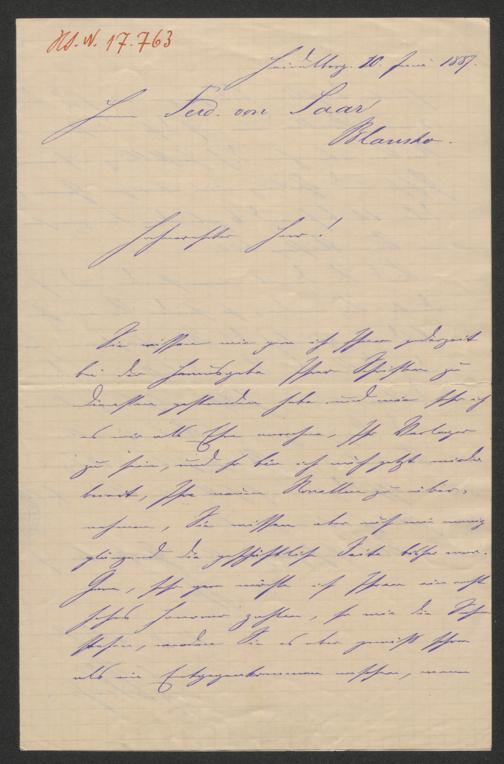 H.S. N. 17.763
Heidelberg. 10. Juni 1887.
Herrn Ferd. von Saar
Blansko.
Hochverehrter Herr!
Sie wissen wie gern ich Ihnen jederzeit
bei der Herausgabe Ihrer Schriften zu
Diensten gestanden habe und wie sehr ich
es mir als Ehre anrechne, Ihr Verleger
zu sein, und so bin ich auch jetzt wieder
bereit, Ihre neuen Novellen zu über-
nehmen, Sie wissen aber auch wie wenig
glänzend die geschäftliche Seite bisher war.
Gern, sehr gern möchte ich Ihnen ein recht
hohes Honorar zahlen, so wie die Sachen
stehen, werden Sie es aber gewiß schon
als ein Entgegenkommen ansehen, wenn